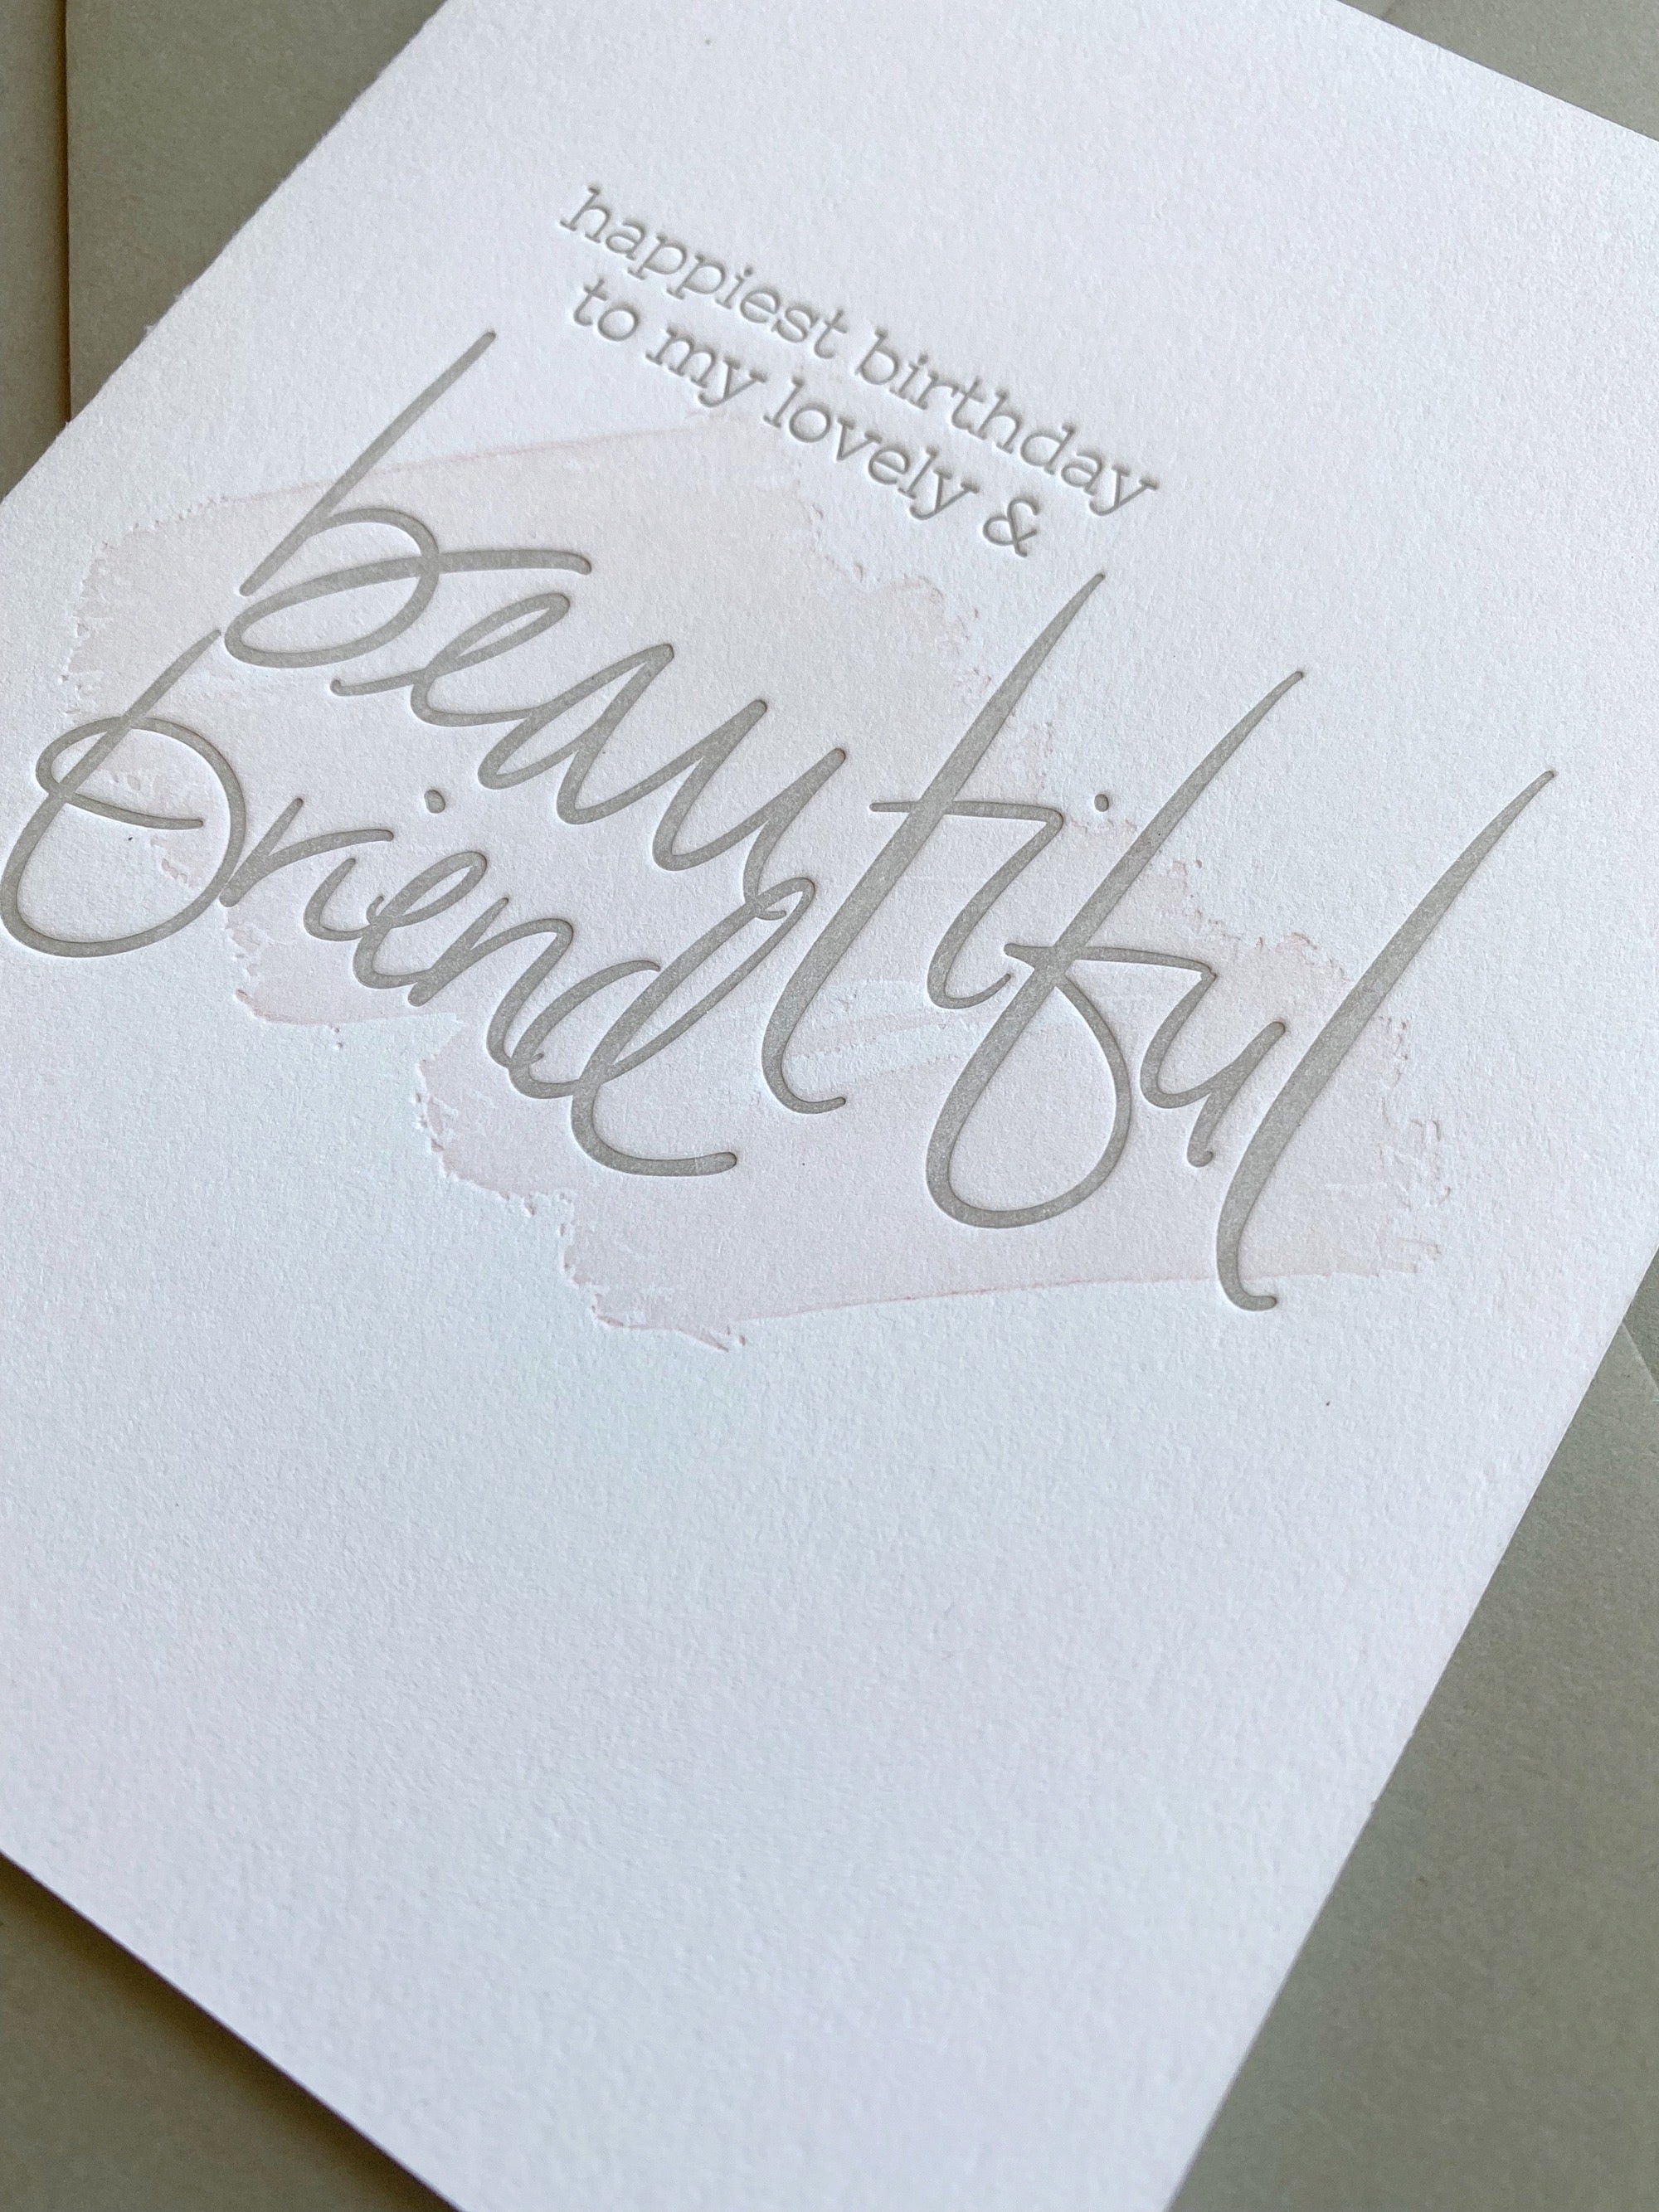 happiest birthday
to my lovely &
beautiful
friend